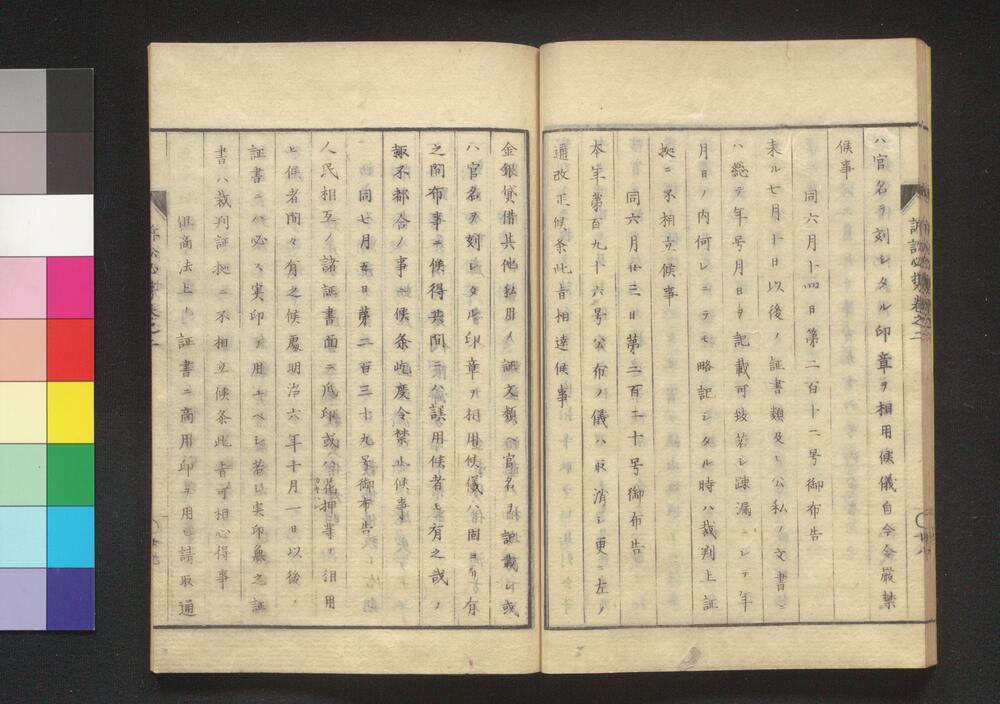 ハ官名ヲ刻シタル印章ヲ相用候儀自今令厳禁
候事
同六月十四日第二百十二号御布告
来ル七月十日以後ノ証書類及ヒ公私ノ文書ニ
ハ総テ年号月日ヲ記載可致若シ疎漏ニシテ年
月日ノ内何レニテモ略記シタル時ハ裁判上証
拠ニ不相立候事
同六月廿三日第二百二十号御布告
本年第百九十六号公布ノ儀ハ取消シ更ニ左ノ
通改正候条此旨相達候事
金銀貸借其他私用ノ証文類ヘ官名ヲ記載シ或
ハ官名ヲ刻シタル印章ヲ相用候儀ハ固ヨリ有
之間布事ニ候得共間ニハ誤用候者モ有之哉ノ
諏不都合ノ事ニ候条屹度令禁止候事
同七月五日第二百三十九号御布告
人民相互ノ諸証書面ニ爪印或ハ花押等ヲ相用
ヒ候者間々有之候処明治六年十月一日以後ノ
証書ニハ必ス実印ヲ用ユヘシ若シ実印無之証
書ハ裁判証拠ニ不相立候条此旨可相心得事
但商法上ノ証書ニ商用印ヲ用ヒ請取通